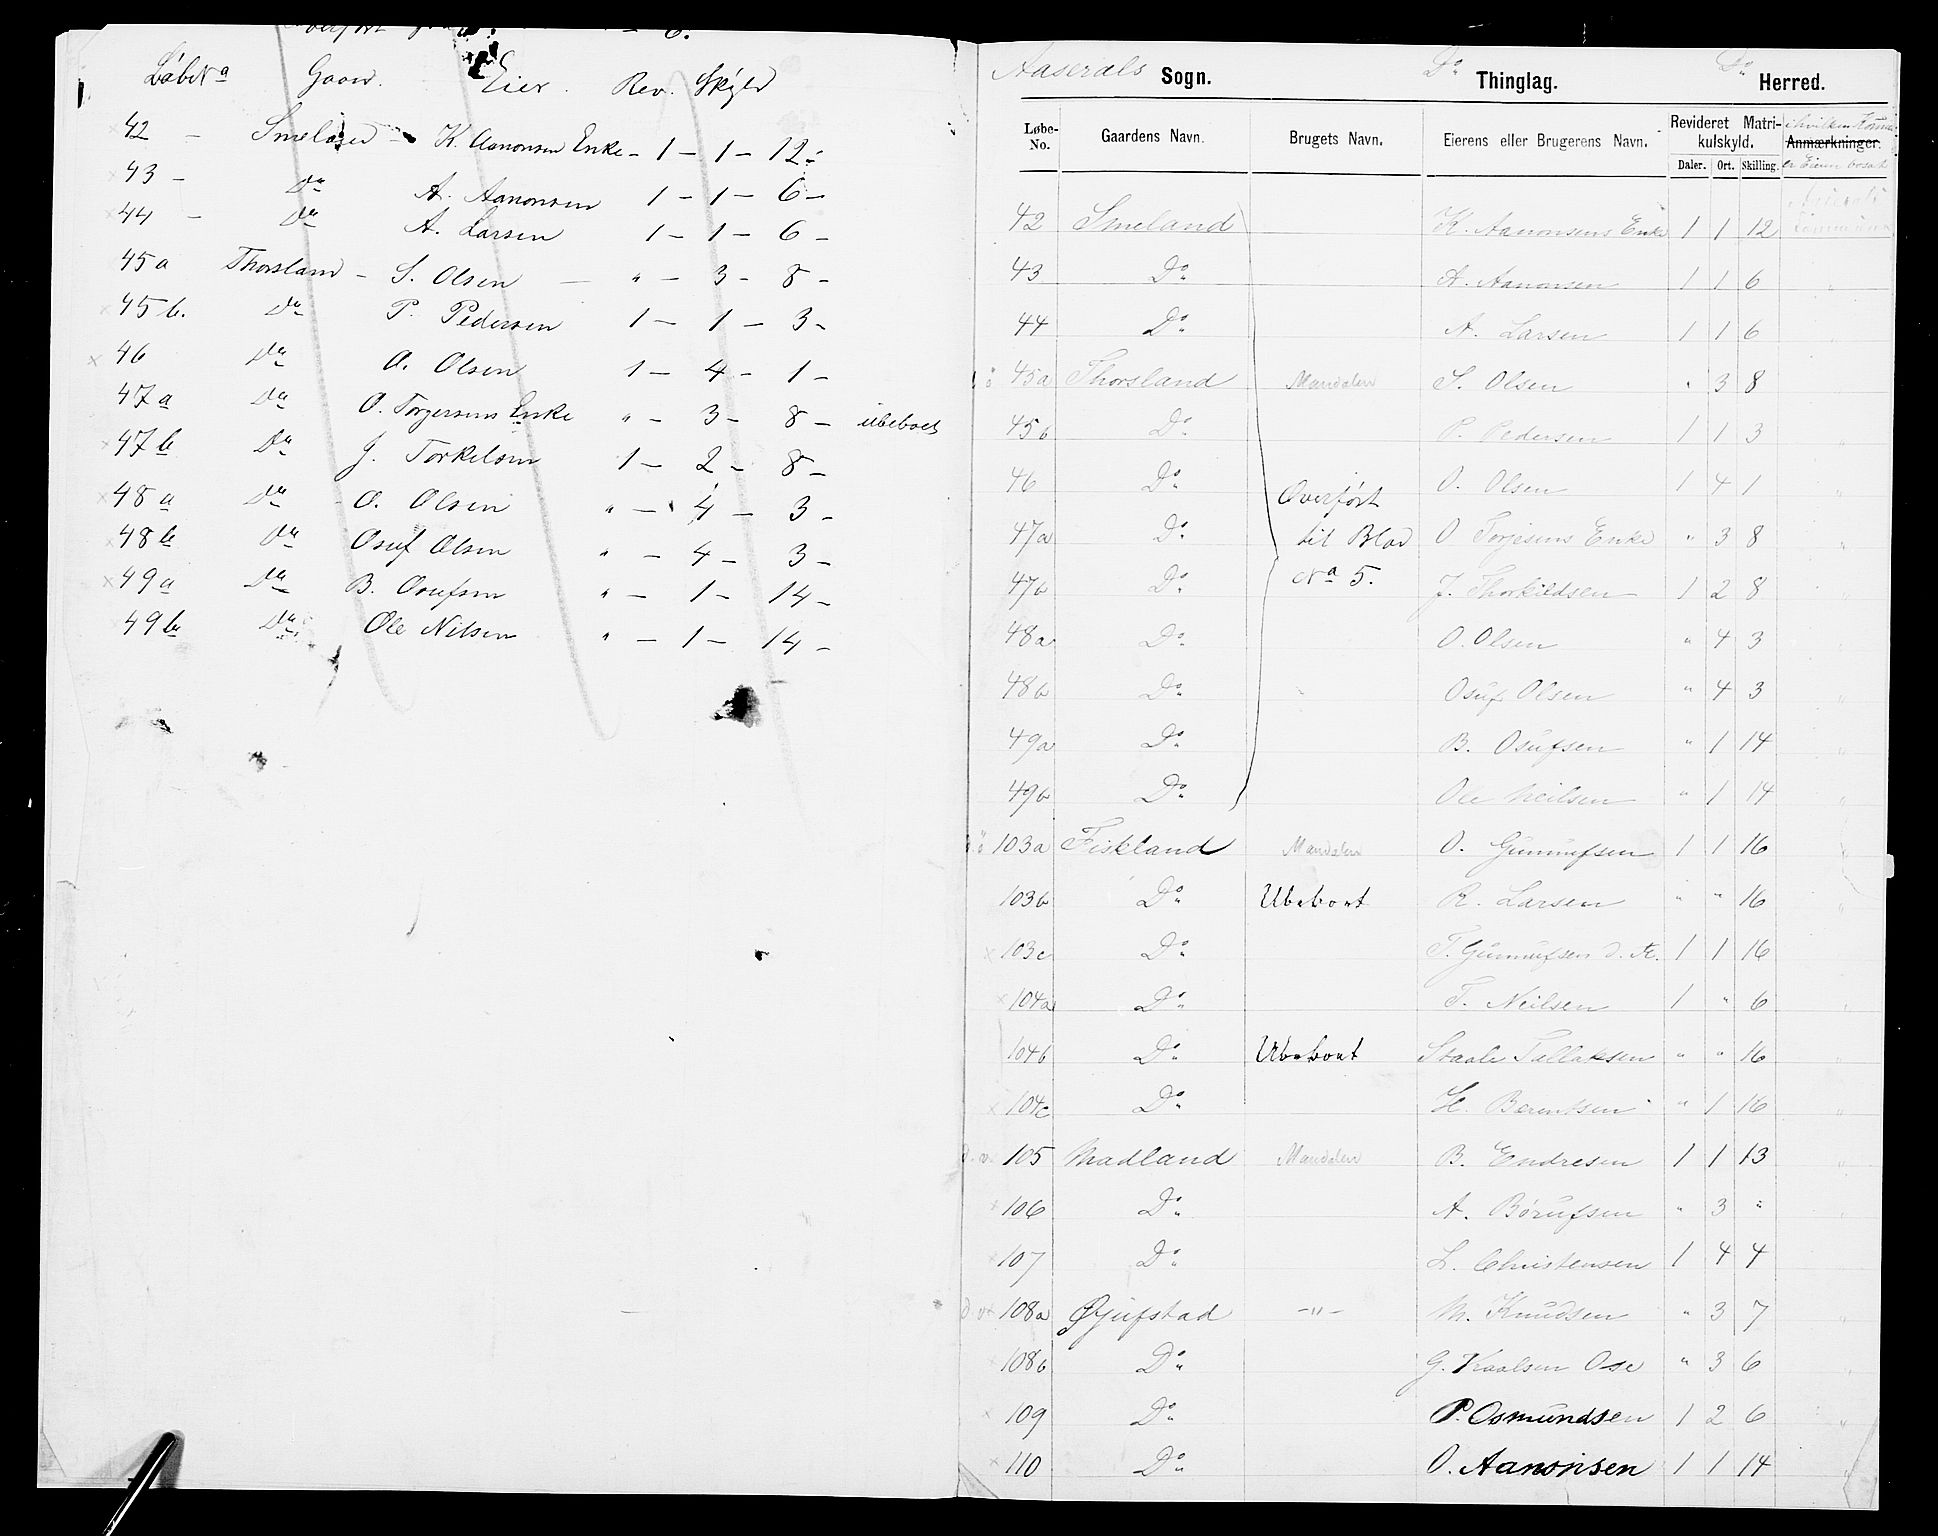 LøbeNo Gaard. Eier. Rev. Skyld
42 – Smeland – K. Aanonsen Enke – 1 – 1 – 12 –
43 – Do A. Aanonsen 1 – 1 – 6 –
44 – Do A. Larsen 1 – 1 – 6 –
45a Thorsland – S. Olsen – " – 3 – 8 –
45b. Do P. Pedersen 1 – 1 – 3 –
× 46 Do O. Olsen 1 – 4 – 1 –
47a Do O. Torgersens Enke " – 3 – 8 – ubeboet
47b Do J. Torkelsen 1 – 2 – 8 –
× 48a Do O. Olsen " – 4 – 3 –
48b Do Osuf Olsen " – 4 – 3 –
× 49a Do B. Osufsen " – 1 – 14 –
49b Do Ole Nilsen " – 1 – 14 –
Aaserals Sogn. Do Thinglag. Do Herred.
Løbe-No. Gaardens Navn. Brugets Navn. Eierens eller Brugerens Navn. Revideret Matrikulskyld. Daler. Ort. Skilling. Anmærkninger. i hvilken Komm. er Eieren bosat
42 Smeland K. Aanonsens Enke 1 1 12 Aaserals Kommune
43 Do A. Aanonsen 1 1 6 "
44 Do A. Larsen 1 1 6 "
45a Thorsland Mandalen S. Olsen " 3 8
45b Do P. Pedersen 1 1 3 "
46 Do O. Olsen 1 4 1 "
Overført til Blad No 5.
47a Do O Torjesens Enke " 3 8 "
47b Do J. Thorkildsen 1 2 8 "
48a Do O. Olsen " 4 3 "
48b Do Osuf Olsen " 4 3 "
49a Do B. Osufsen " 1 14 "
49b Do Ole Neilsen " 1 14 "
103a Fiskland Mandalen O. Gunnufsen 1 1 16
103b Do Ubeboet R. Larsen " " 16 "
× 103c Do T. Gunnufsen d. Æ. 1 1 16 "
× 104a Do T. Neilsen 1 " 6 "
104b Do Ubeboet Staale Tallaksen " " 16 "
× 104c Do H. Berentsen " 1 16 "
105 Madland Mandalen B. Endresen 1 1 13 "
× 106 Do A. Børufsen " 3 " "
× 107 Do L. Christensen 1 4 4 "
108a Øjufstad – " – M. Knudsen " 3 7 "
× 108b Do G. Kaalsen Ose " 3 6 "
× 109 Do P. Osmundsen 1 2 6 "
× 110 Do O. Aanonsen 1 1 14 "